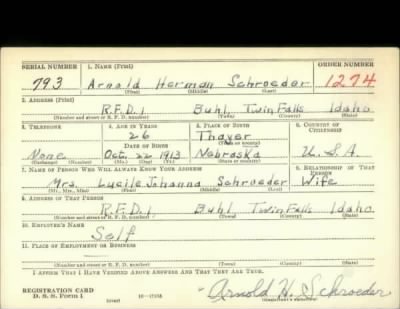 SERIAL NUMBER 1. NAME (Print) ORDER NUMBER
793 Arnold Herman Schroeder 1274
(First) (Middle) (Last)
2. ADDRESS (Print)
R.F.D. 1 Buhl, Twin Falls Idaho
(Number and street or R. F. D. number) (Town) (County) (State)
3. TELEPHONE 4. AGE IN YEARS 5. PLACE OF BIRTH 6. COUNTRY OF CITIZENSHIP
26 Thayer
DATE OF BIRTH (Town or county)
None Oct. 22 1913 Nebraska U.S.A.
(Exchange) (Number) (Mo.) (Day) (Yr.) (State or country)
7. NAME OF PERSON WHO WILL ALWAYS KNOW YOUR ADDRESS 8. RELATIONSHIP OF THAT PERSON
Mrs. Lucile Johanna Schroeder Wife
(Mr., Mrs., Miss) (First) (Middle) (Last)
9. ADDRESS OF THAT PERSON
R.F.D. 1, Buhl Twin Falls Idaho
(Number and street or R. F. D. number) (Town) (County) (State)
10. EMPLOYER'S NAME
Self
11. PLACE OF EMPLOYMENT OR BUSINESS
(Number and street or R. F. D. number) (Town) (County) (State)
I AFFIRM THAT I HAVE VERIFIED ABOVE ANSWERS AND THAT THEY ARE TRUE.
REGISTRATION CARD
D. S. S. Form 1 (over) Arnold H. Schroeder